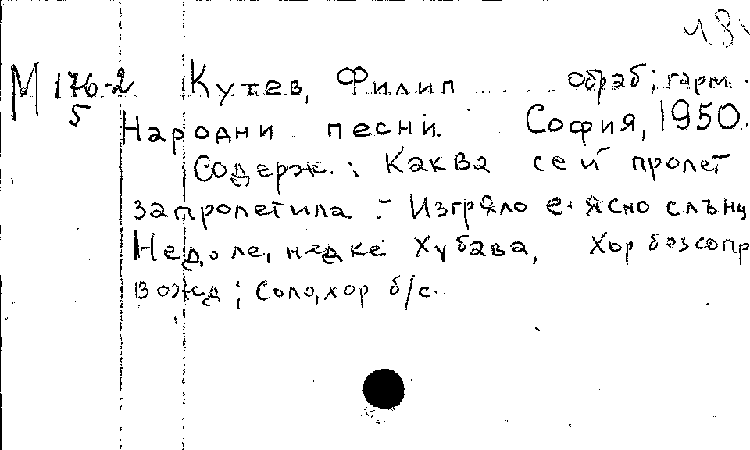 М 176-2 Кутев, Филип обраб; гарм.
5
Народни песни. София, 1950.
Содерж.: Каква се й пролет
запролетила. - Изгряло е ясно слънц
Недоле, недке хубава, хор безсопр
вожд; Соло, хор б/с.